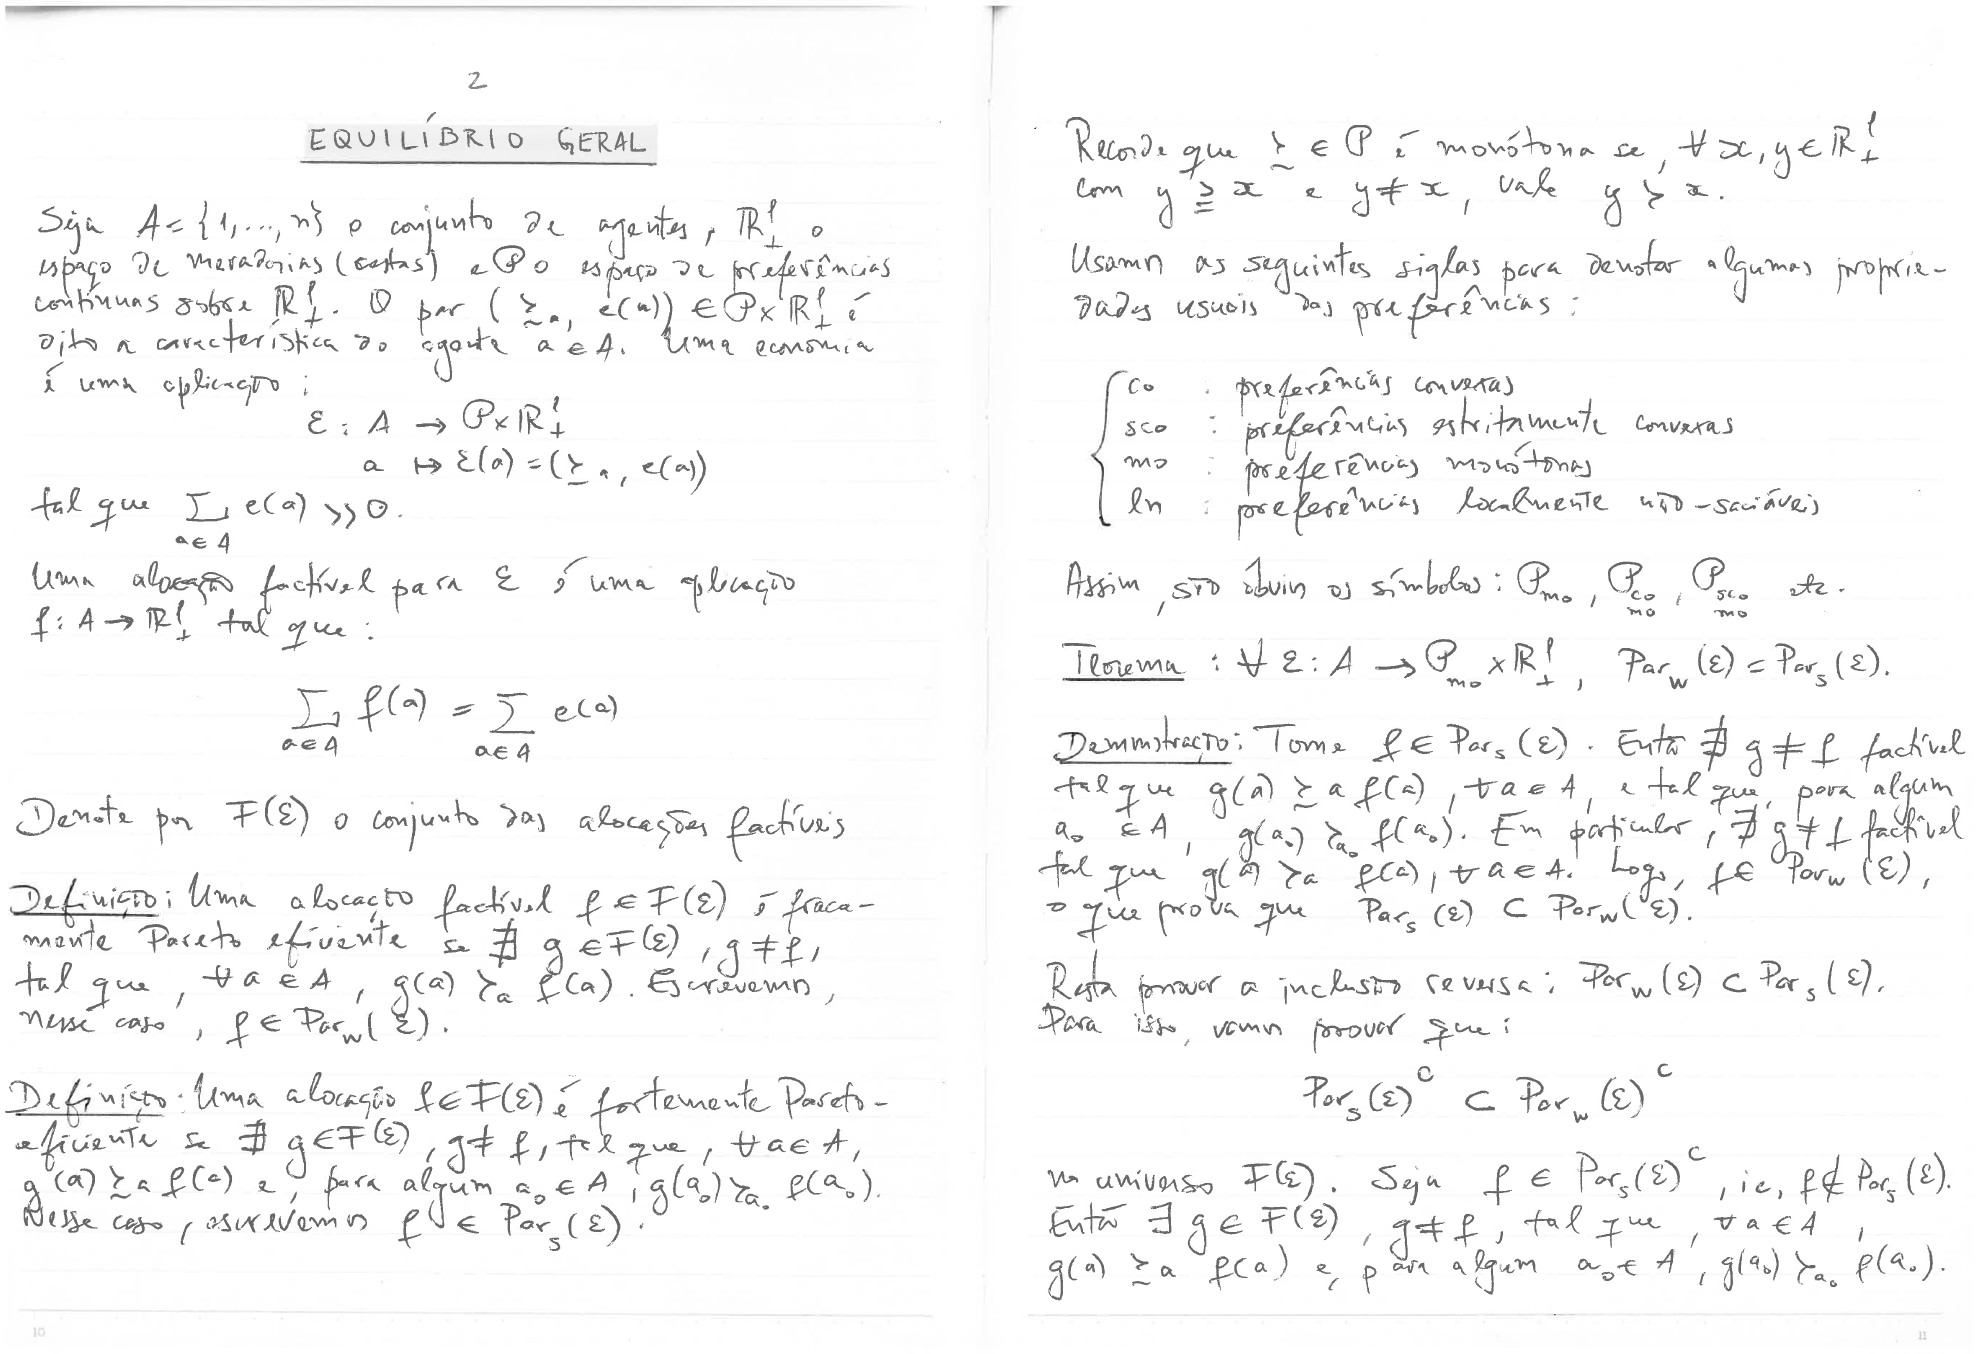 2
EQUILÍBRIO GERAL
Seja A = {1, ..., n} o conjunto de agentes, ℝˡ₊ o
espaço de mercadorias (cestas) e 𝒫 o espaço de preferências
contínuas sobre ℝˡ₊. O par (≿ₐ, e(a)) ∈ 𝒫 × ℝˡ₊ é
dito a característica do agente a ∈ A. Uma economia
é uma aplicação:
ℰ : A → 𝒫 × ℝˡ₊
a ↦ ℰ(a) = (≿ₐ, e(a))
tal que ∑_{a∈A} e(a) >> 0.
Uma alocação factível para ℰ é uma aplicação
f : A → ℝˡ₊ tal que:
∑_{a∈A} f(a) = ∑_{a∈A} e(a)
Denote por F(ℰ) o conjunto das alocações factíveis
Definição: Uma alocação factível f ∈ F(ℰ) é fraca-
mente Pareto eficiente se ∄ g ∈ F(ℰ), g ≠ f,
tal que, ∀ a ∈ A, g(a) ≻ₐ f(a). Escrevemos,
nesse caso, f ∈ Par_w(ℰ).
Definição: Uma alocação f ∈ F(ℰ) é fortemente Pareto-
eficiente se ∄ g ∈ F(ℰ), g ≠ f, tal que, ∀ a ∈ A,
g(a) ≿ₐ f(a) e, para algum a₀ ∈ A, g(a₀) ≻ₐ₀ f(a₀).
Nesse caso, escrevemos f ∈ Par_s(ℰ).
10
Recorde que ≿ ∈ 𝒫 é monótona se, ∀ x, y ∈ ℝˡ₊
com y ≧ x e y ≠ x, vale y ≻ x.
Usamos as seguintes siglas para denotar algumas proprie-
dades usuais das preferências:
co : preferências convexas
sco : preferências estritamente convexas
mo : preferências monótonas
ln : preferências localmente não-saciáveis
Assim, são óbvios os símbolos: 𝒫_mo, 𝒫_{co mo}, 𝒫_{sco mo} etc.
Teorema : ∀ ℰ : A → 𝒫_mo × ℝˡ₊, Par_w(ℰ) = Par_s(ℰ).
Demonstração: Tome f ∈ Par_s(ℰ). Então ∄ g ≠ f factível
tal que g(a) ≿ₐ f(a), ∀ a ∈ A, e tal que, para algum
a₀ ∈ A, g(a₀) ≻ₐ₀ f(a₀). Em particular, ∄ g ≠ f factível
tal que g(a) ≻ₐ f(a), ∀ a ∈ A. Logo, f ∈ Par_w(ℰ),
o que prova que Par_s(ℰ) ⊂ Par_w(ℰ).
Resta provar a inclusão reversa: Par_w(ℰ) ⊂ Par_s(ℰ).
Para isso, vamos provar que:
Par_s(ℰ)^C ⊂ Par_w(ℰ)^C
no universo F(ℰ). Seja f ∈ Par_s(ℰ)^C, ie, f ∉ Par_s(ℰ).
Então ∃ g ∈ F(ℰ), g ≠ f, tal que, ∀ a ∈ A,
g(a) ≿ₐ f(a) e, para algum a₀ ∈ A, g(a₀) ≻ₐ₀ f(a₀).
11